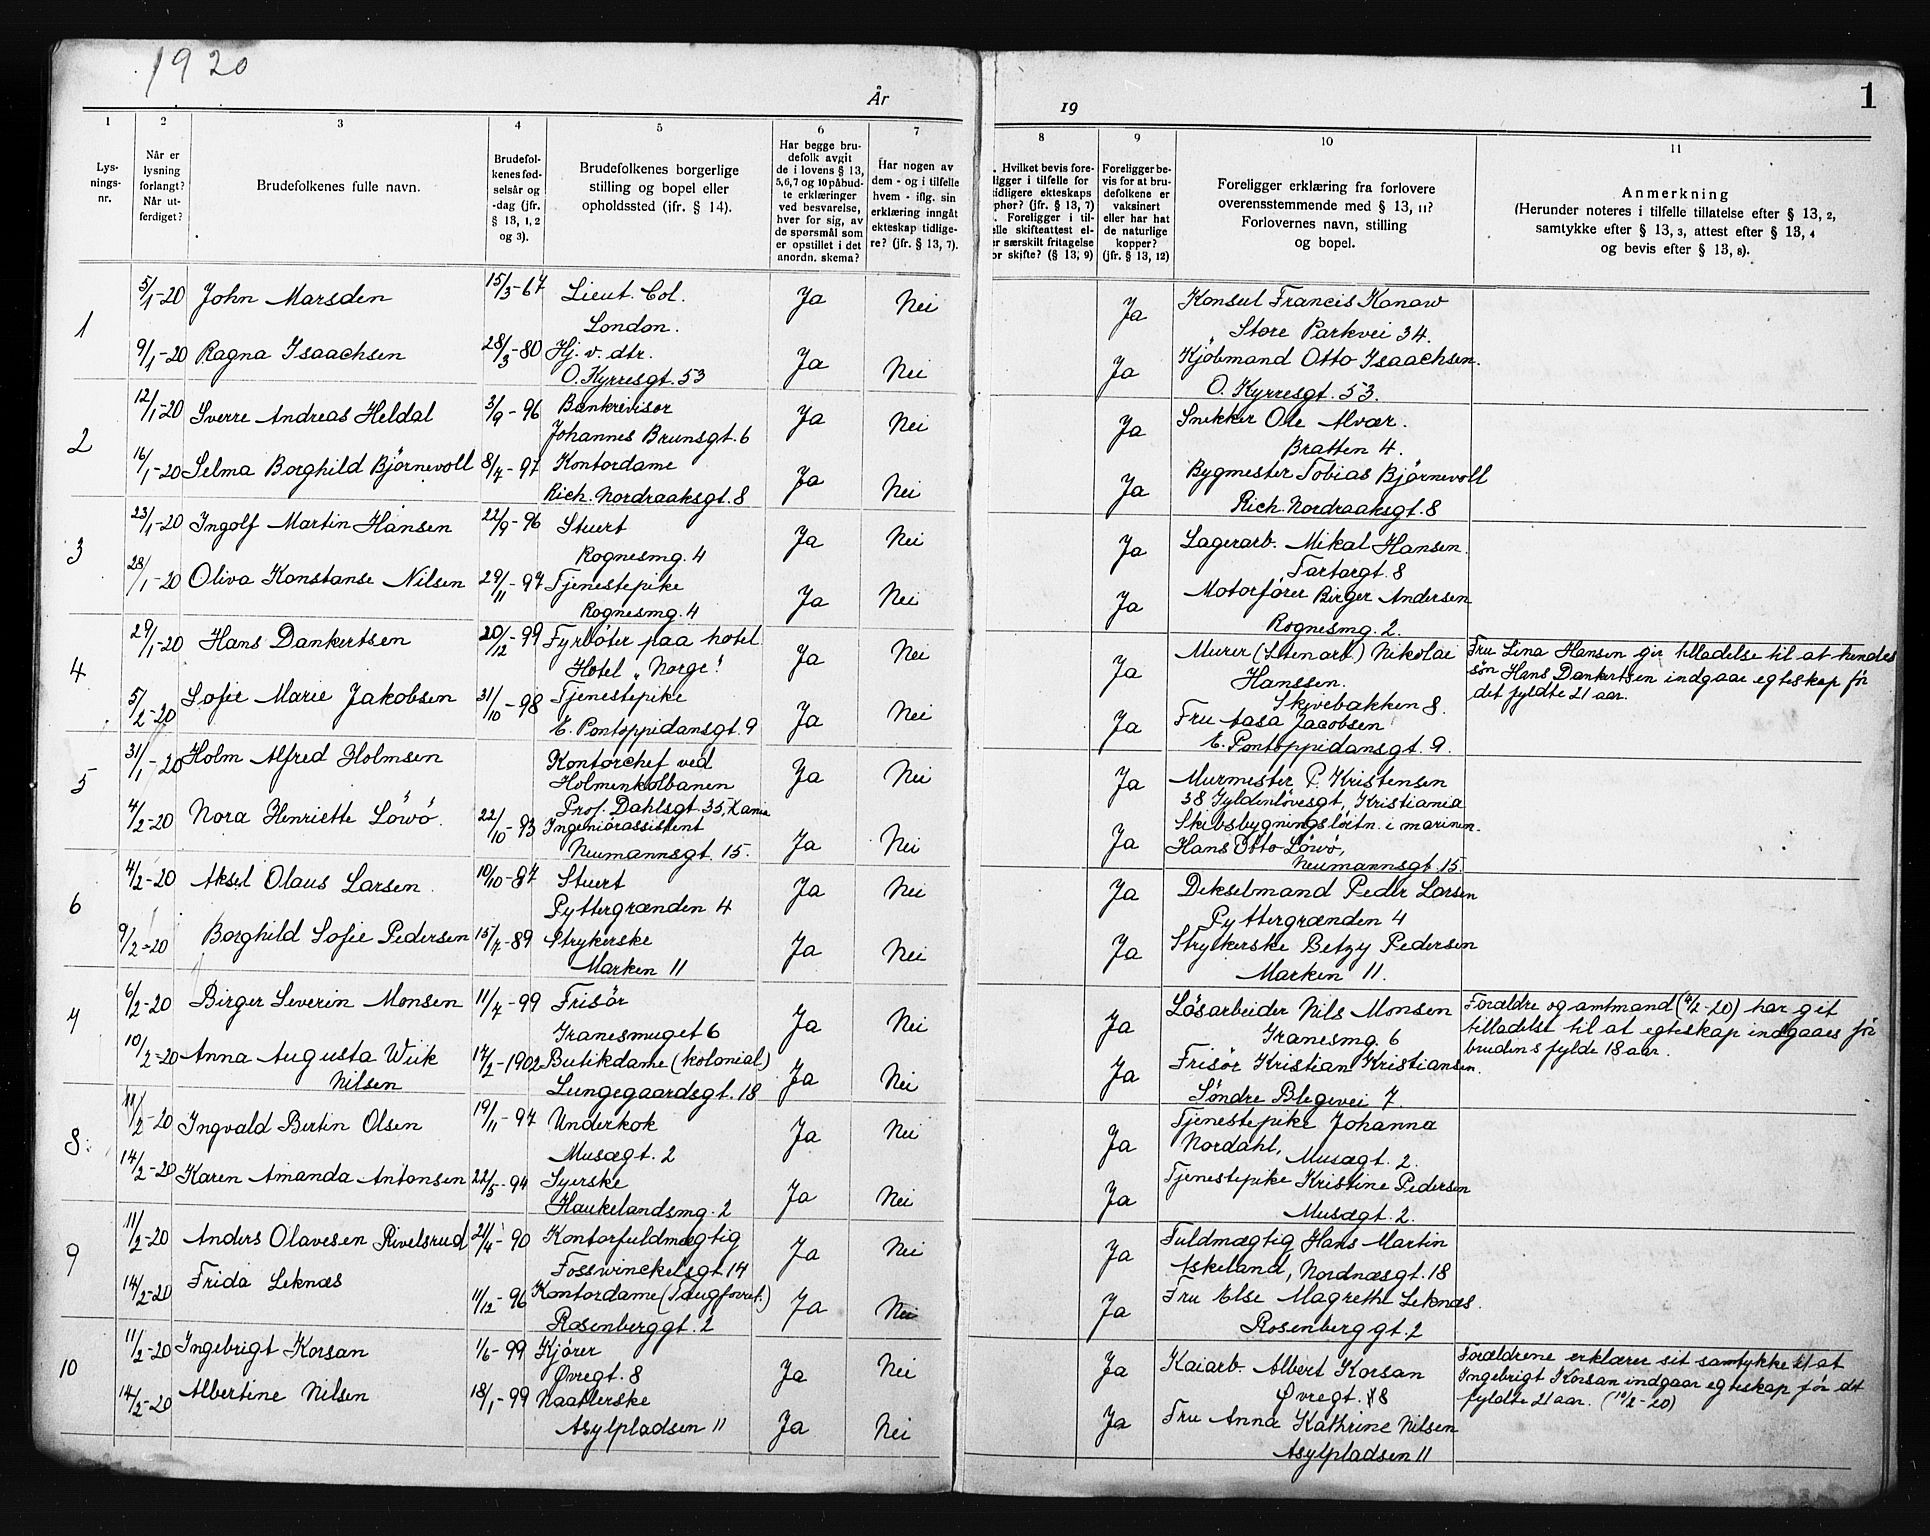 1920
År
19
1
1
2
3
4
5
6
7
8
9
10
11
Lys-
nings-
nr.
Når er
lysning
forlangt?
Når ut-
ferdiget?
Brudefolkenes fulle navn.
Brudefol-
kenes fød-
selsår og
-dag (jfr.
§ 13, 1, 2
og 3).
Brudefolkenes borgerlige
stilling og bopel eller
opholdssted (ifr. § 14).
Har begge bru-
defolk avgit
de i lovens § 13,
5,6,7 og 10 påbud-
te erklæringer
ved besvarelse,
hver for sig, av
de spørsmål som
er opstillet i det
anordn. skema?
Har nogen av
dem - og i tilfelle
hvem - iflg. sin
erklæring inngått
ekteskap tidlige-
re? (jfr. § 13, 7).
. Hvilket bevis fore-
ligger i tilfelle for
tidligere ekteskaps
ophør? (jfr. § 13, 7)
. Foreligger i til-
elle skifteattest el-
er særskilt fritagelse
or skifte? (§ 13, 9)
Foreligger be-
vis for at bru-
defolkene er
vaksinert
eller har hat
de naturlige
kopper?
(jfr. § 13, 12)
Foreligger erklæring fra forlovere
overensstemmende med § 13, 11?
Forlovernes navn, stilling
og bopel.
Anmerkning
(Herunder noteres i tilfelle tillatelse efter § 13, 2,
samtykke efter § 13, 3, attest efter § 13, 4
og bevis efter § 13, 8).
1
5/1-20 John Marsden 15/3-67 Lieut. Col. Ja Nei Ja Konsul Francis Kanaw
London. Store Parkvei 34.
9/1-20 Ragna Isaachsen 28/3-80 Hj. v. dtr. Ja Nei Ja Kjöbmand Otto Isaachsen.
O. Kyrresgt. 53 O. Kyrresgt. 53.
2
12/1-20 Sverre Andreas Heldal 3/9-96 Bankrevisor Ja Nei Ja Snekker Ole Alvær.
Johannes Brunsgt. 6 Bratten 4.
16/1-20 Selma Borghild Björnevoll 8/7-97 Kontordame Ja Nei Ja Bygmester Tobias Björnevoll
Rich. Nordraaksgt. 8 Rich. Nordraaksgt. 8
3
23/1-20 Ingolf Martin Hansen 22/9-96 Stuert Ja Nei Ja Lagerarb. Mikal Hansen.
Rognesmg. 4 Tartargt. 8
28/1-20 Oliva Konstanse Nilsen 29/11-97 Tjenestepike Ja Nei Ja Motorförer Birger Andersen
Rognesmg. 4 Rognesmg. 2.
4
29/1-20 Hans Dankertsen 20/12-99 Fyrböter paa hotel Ja Nei Ja Murer (Stenarb.) Nikolai
Hotel "Norge" Hanssen.
Skivebakken 8.
Fru Lina Hansen gir tilladelse til at hendes
sön Hans Dankertsen indgaar egteskap för
det fyldte 21 aar.
5/2-20 Sofie Marie Jakobsen 31/10-98 Tjenestepike Ja Nei Ja Fru Aasa Jacobsen
E. Pontoppidansgt. 9 E. Pontoppidansgt. 9.
5
31/1-20 Holm Alfred Holmsen Kontorchef ved Ja Nei Ja Murmester P. Kristensen
Holmenkolbanen 38 Gyldenlövesgt, Kristiania
Prof. Dahlsgt. 35, Kania
4/2-20 Nora Henriette Lövö. 22/10-93 Ingeniörassistent Ja Nei Ja Skibsbygningslöitn. i marinen.
Neumannsgt. 15. Hans Otto Lövö,
Neumannsgt. 15.
6
4/2-20 Aksel Olaus Larsen. 10/10-87 Stuert Ja Nei Ja Dekselmand Peder Larsen
Pyttergrænden 4 Pyttergrænden 4
9/2-20 Borghild Sofie Pedersen 15/7-89 Strykerske Ja Nei Ja Strykerske Betzy Pedersen
Marken 11 Marken 11.
7
6/2-20 Birger Severin Monsen 11/7-99 Frisör Ja Nei Ja Lösarbeider Nils Monsen
Granesmuget 6 Granesmg. 6
Forældre og amtmand (4/2-20) har git
tilladelse til at egteskap indgaaes för
brudens fylde 18 aar.
10/2-20 Anna Augusta Wiik 14/2-1902 Butikdame (kolonial) Ja Nei Ja Frisör Kristian Kristiansen.
Nilsen Lungegaardsgt. 18 Söndre Blegevei 7.
8.
11/2-20 Ingvald Bertin Olsen 19/11-97 Underkok Ja Nei Ja Tjenestepike Johanna
Musægt. 2 Nordahl, Musægt. 2.
14/2-20 Karen Amanda Antonsen 22/5-94 Syerske Ja Nei Ja Tjenestepike Kristine Pedersen
Haukelandsmg. 2 Musægt. 2.
9
11/2-20 Anders Olavesen Rivelsrud 21/4-90 Kontorfuldmægtig Ja Nei Ja Fuldmægtig Hans Martin
Fosswinckelsgt. 14 Askeland, Nordnæsgt. 18
14/2-20 Frida Leknæs 11/12-96 Kontordame (Taugforret.) Ja Nei Ja Fru Else Magrethe Leknæs.
Rosenberggt. 2 Rosenberggt. 2
10
11/2-20 Ingebrigt Korsan 1/6-99 Kjörer Ja Nei Ja Kaiarb. Albert Korsan
Øvregt. 8 Øvregt. 8
Forældrene erklærer sit samtykke til at
Ingebrigt Korsan indgaar egteskap för det
fyldte 21 aar. (10/2-20)
14/2-20 Albertine Nilsen 18/1-99 Naatlerske Ja Nei Ja Fru Anna Kathrine Nilsen
Asylpladsen 11 Asylpladsen 11